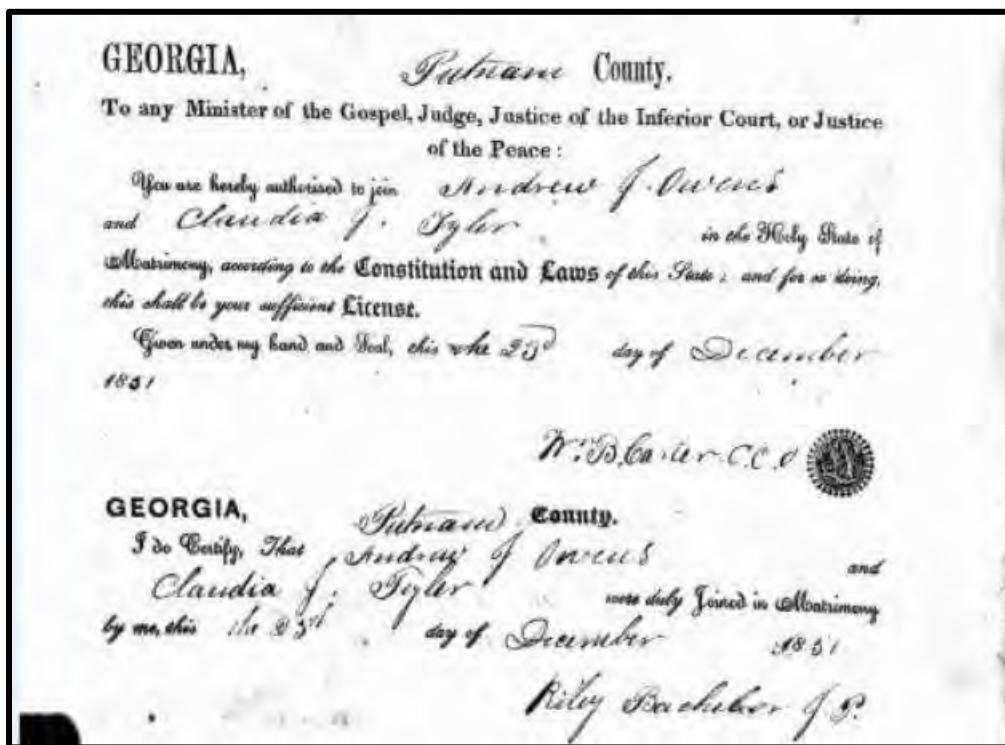 GEORGIA, Putnam County.
To any Minister of the Gospel, Judge, Justice of the Inferior Court, or Justice
of the Peace:
You are hereby authorised to join Andrew J. Owens
and Claudia J. Tyler in the Holy State of
Matrimony, according to the Constitution and Laws of this State; and for so doing,
this shall be your sufficient License.
Given under my hand and Seal, this the 23d day of December
1851
Wm B. Carter C.C.O
GEORGIA, Putnam County.
I do Certify, That Andrew J Owens and
Claudia J. Tyler were duly Joined in Matrimony
by me, this the 23rd day of December 1851
Riley Bachelor J P.